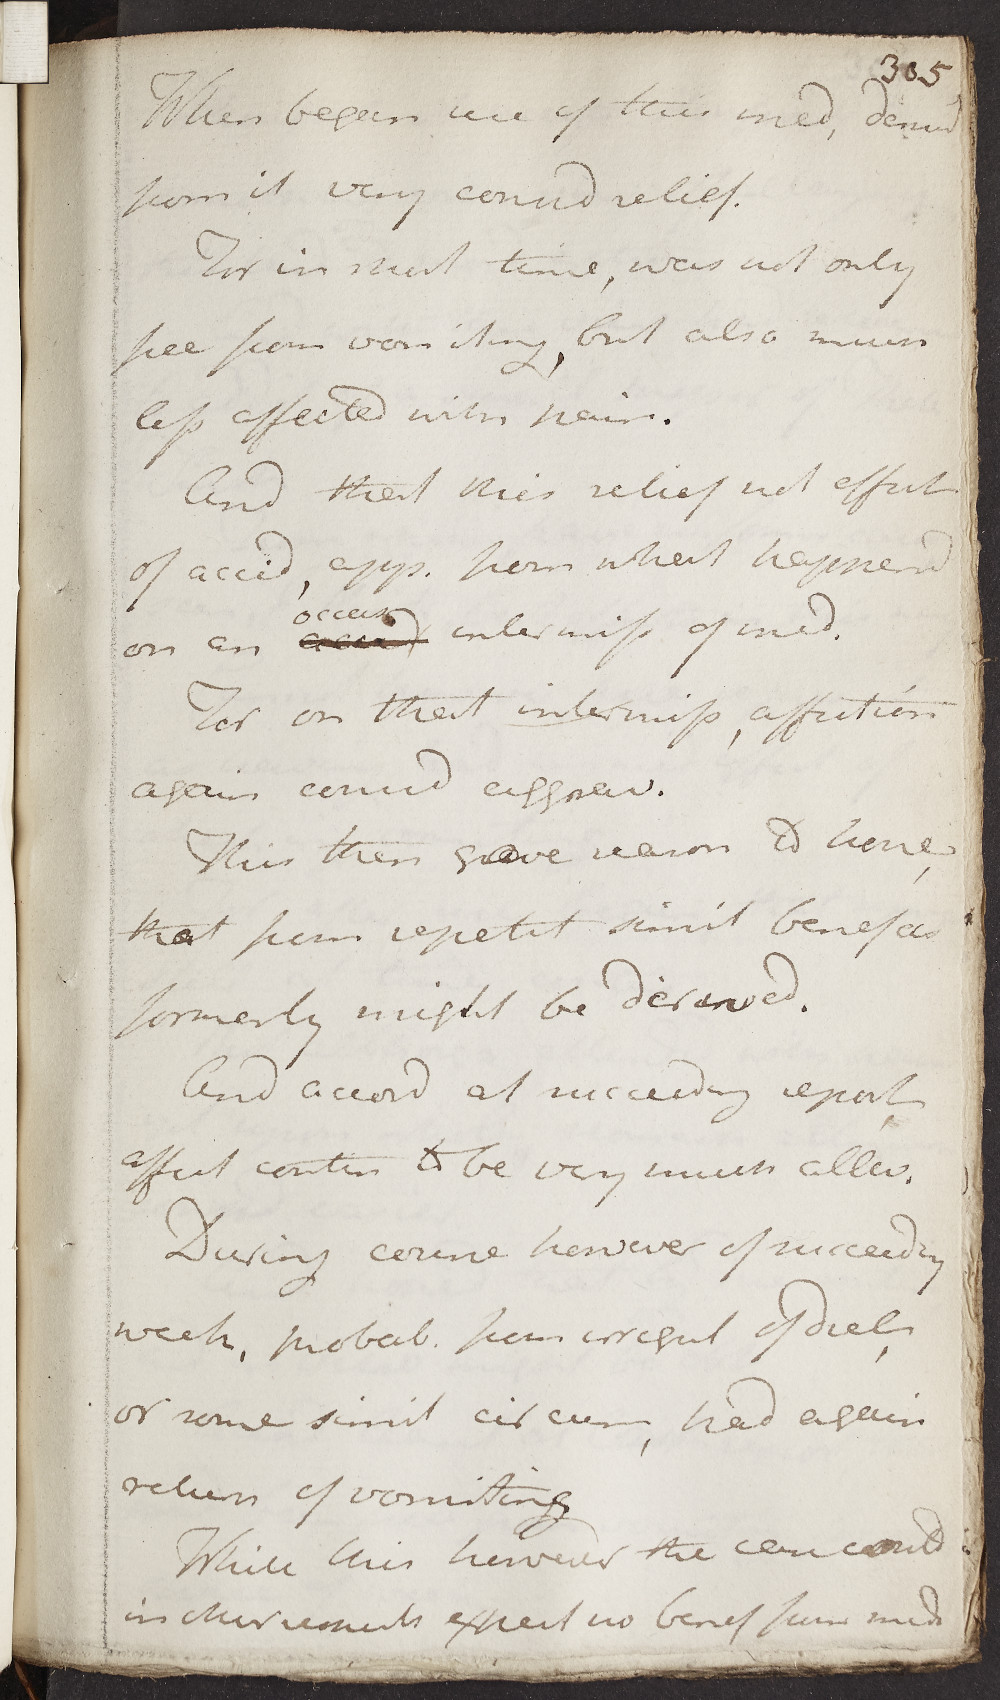 305
When began use of this med, derivd
from it very considd relief.
For in short time, was not only
free from vomiting, but also much
less affected with pain.
And that this relief not effect
of accid, app. from what happend
on an occas intermiss of med.
For on that intermiss, affection
again considd aggrav.
This then gave reason to hope,
that from repetit simil benef as
formerly might be derived.
And accord at succeeding report
affect contin to be very much allev.
During course however of succeeding
week, probab. from irregul of diet,
or some simil circum, had again
return of vomiting
While this however the case could
in other respects expect no benef from med